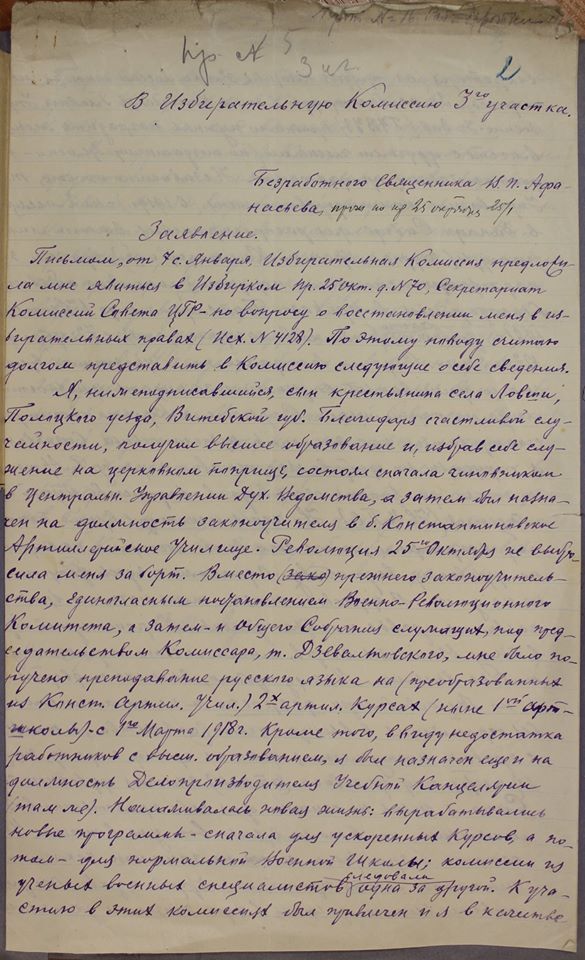 пр. № 5
3 уч.
2
В Избирательную Комиссию 3го участка.
Безработного Священника В. П. Афа-
насьева, прож по пр 25 октября 25/1
Заявление.
Письмом, от 7 с. Января, Избирательная Комиссия предложи-
ла мне явиться в Избирком пр. 25 окт. д. №70, Секретариат
Комиссий Совета ЦГР - по вопросу о восстановлении меня в из-
бирательных правах (Исх. № 4128). По этому поводу считаю
долгом представить в Комиссию следующие о себе сведения.
Я, нижеподписавшийся, сын крестьянина села
Полоцкого уезда, Витебской губ. Благодаря счастливой слу-
чайности, получив высшее образование и, избрав себе слу-
жение на церковном поприще, состоял сначала чиновником
в Центральн. Управлении Дух. Ведомства, а затем был назна-
чен на должность законоучителя в б. Константиновское
Артиллерийское Училище. Революция 25го Октября не выбро-
сила меня за борт. Вместо (зако) прежнего законоучитель-
ства, единогласным постановлением Военно-Революционного
Комитета, а затем - и Общего Собрания служащих, под пред-
седательством Комиссара, т. Дзевалтовского, мне было по-
ручено преподавание русского языка на (преобразованных
из Конст. Артил. Учил.) 2х артил. Курсах (ныне 1ой арт-
школы) - с 1го Марта 1918г. Кроме того, в виду недостатка
работников с высш. образованием, я был назначен еще и на
должность Делопроизводителя Учебной Канцелярии
(там же). Налаживалась новая жизнь: вырабатывались
новые программы - сначала для ускоренных Курсов, а по-
том - для нормальной Военной Школы; комиссии из
ученых военных специалистов следовали одна за другой. К уча-
стию в этих комиссиях был привлечен и я в качестве